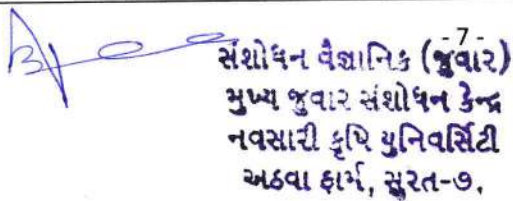 -7-
સંશોધન વૈજ્ઞાનિક (જુવાર)
મુખ્ય જુવાર સંશોધન કેન્દ્ર
નવસારી કૃષિ યુનિવર્સિટી
અઠવા ફાર્મ, સુરત-૭.